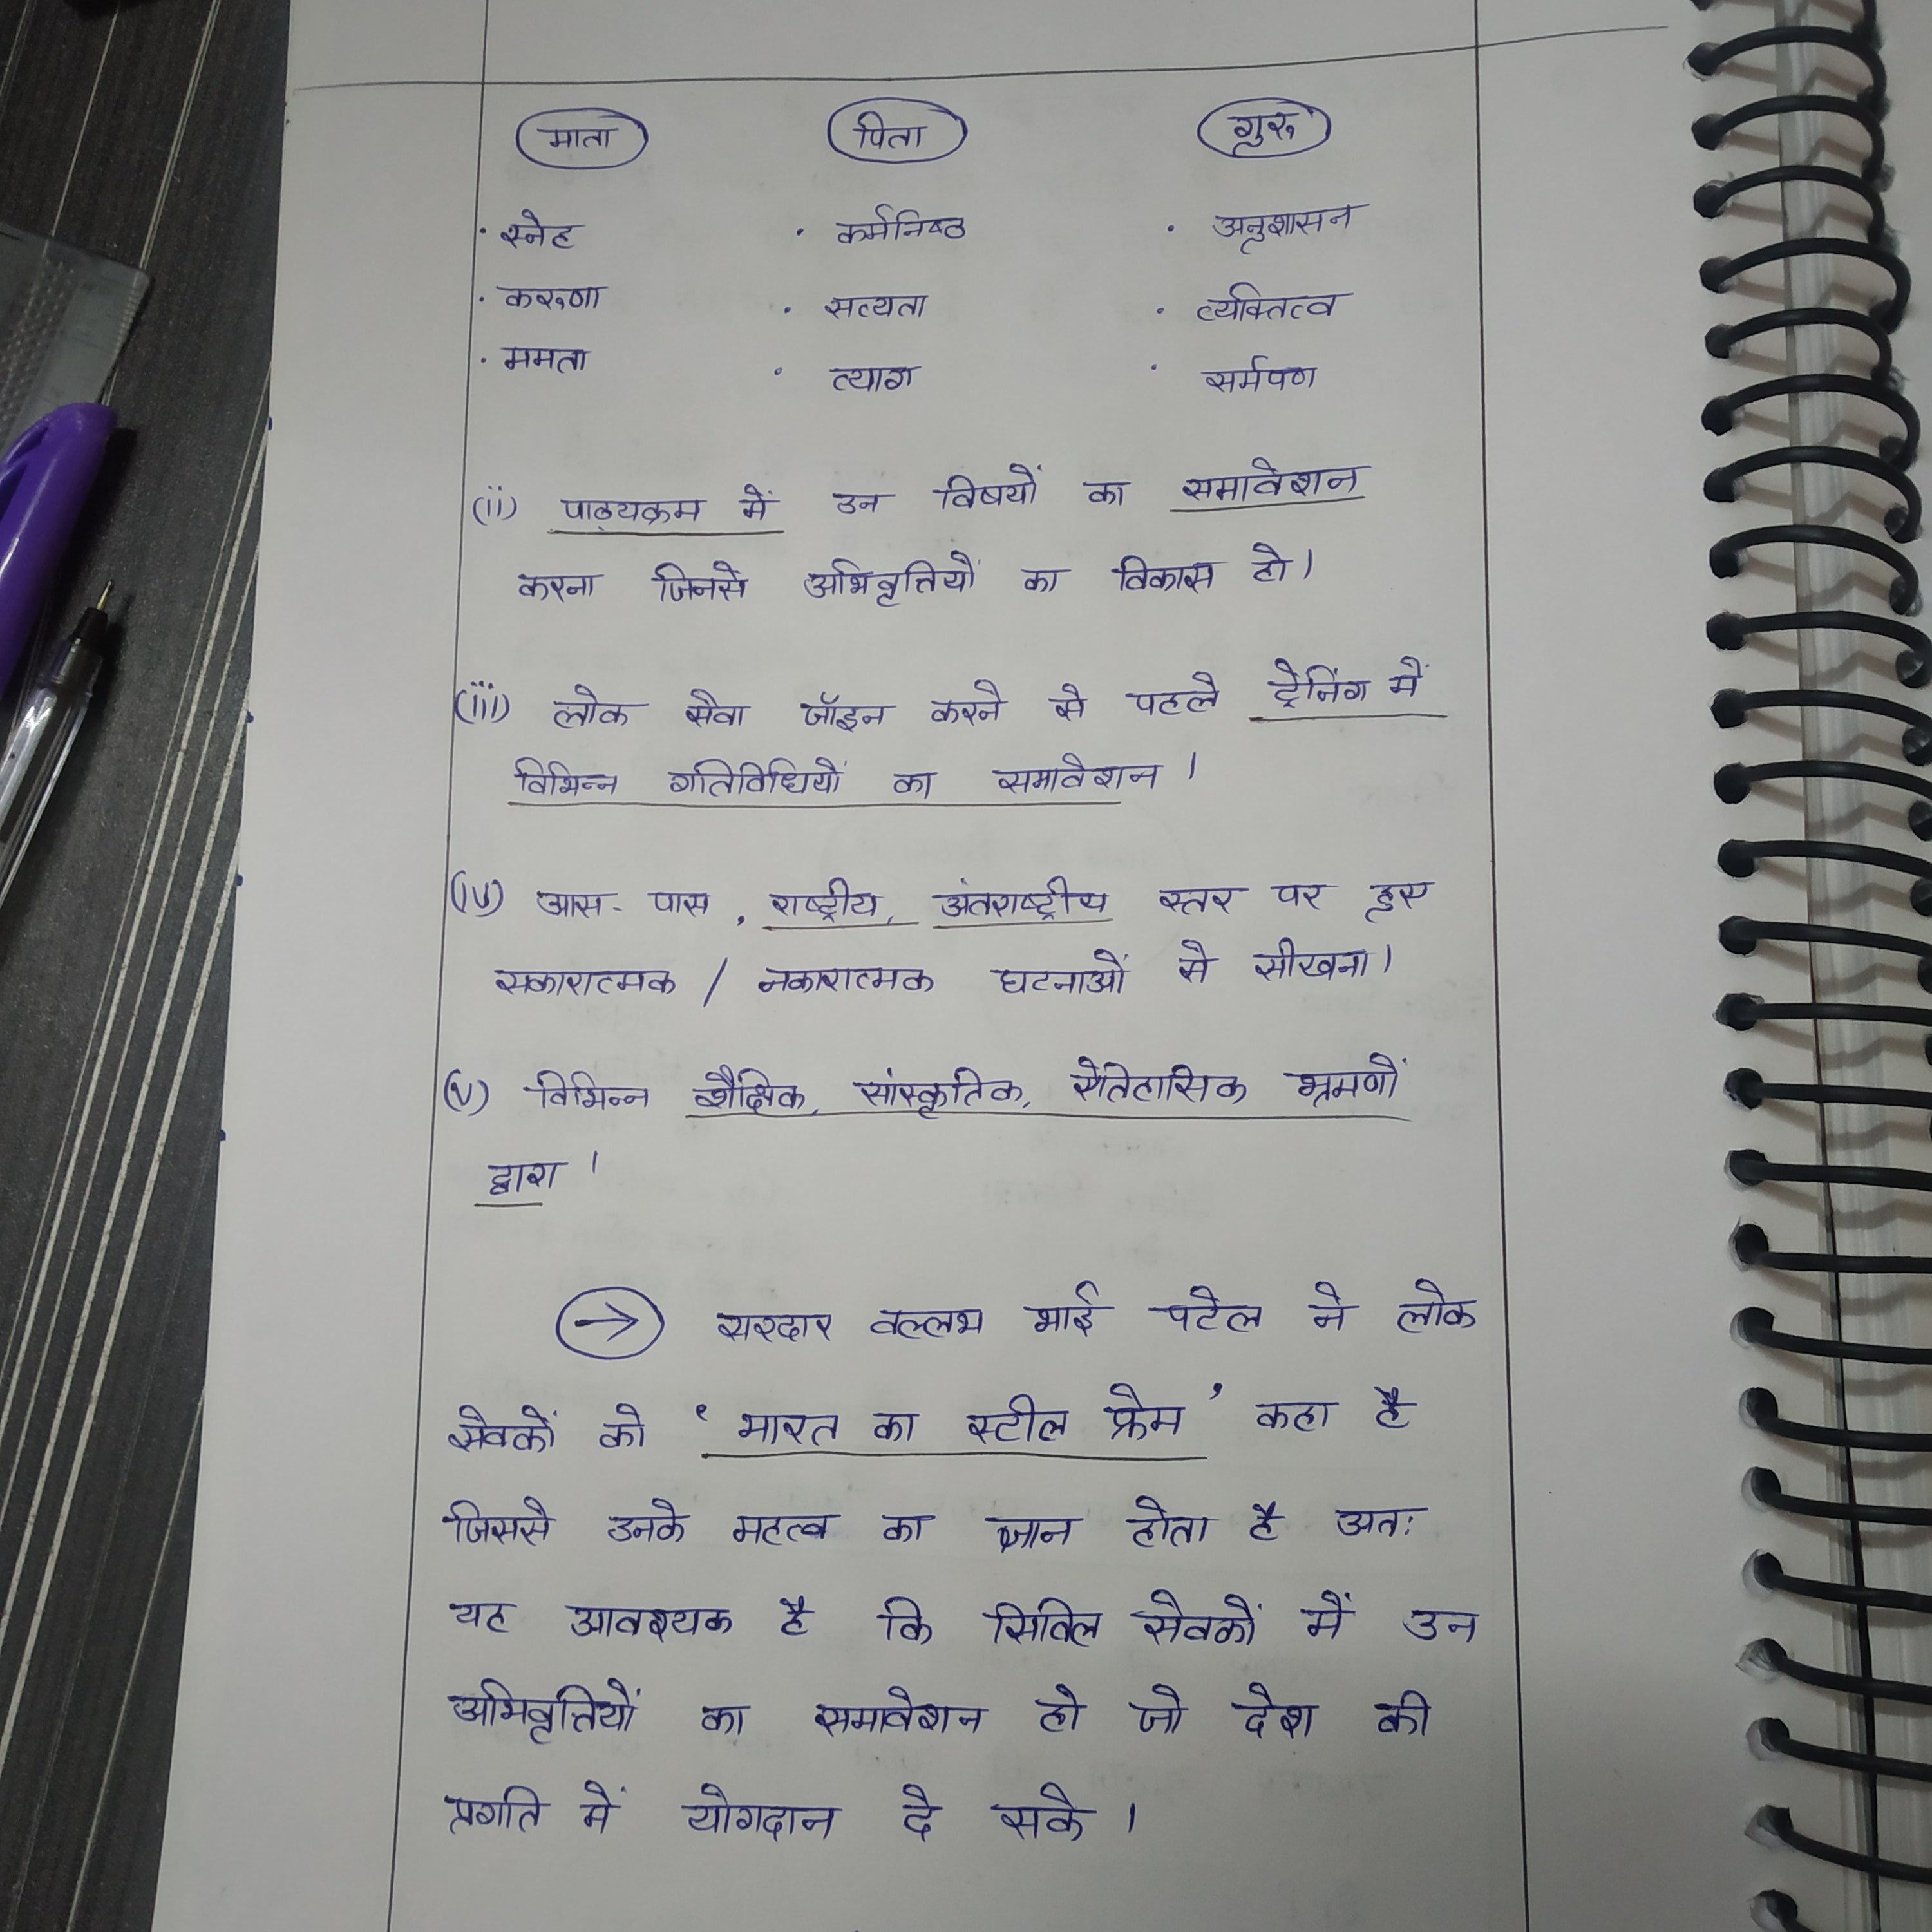 माता पिता गुरु
· स्नेह · कर्मनिष्ठ · अनुशासन
· करुणा · सत्यता · व्यक्तित्व
· ममता · त्याग · सर्मपण
(ii) पाठ्यक्रम में उन विषयों का समावेशन
करना जिनसे अभिवृत्तियों का विकास हो।
(iii) लोक सेवा जॉइन करने से पहले ट्रेनिंग में
विभिन्न गतिविधियों का समावेशन।
(iv) आस-पास, राष्ट्रीय, अंतराष्ट्रीय स्तर पर हुए
सकारात्मक / नकारात्मक घटनाओं से सीखना।
(v) विभिन्न शैक्षिक, सांस्कृतिक, ऐतिहासिक भ्रमणों
द्वारा।
→ सरदार वल्लभ भाई पटेल ने लोक
सेवकों को ‘भारत का स्टील फ्रेम’ कहा है
जिससे उनके महत्व का ज्ञान होता है अतः
यह आवश्यक है कि सिविल सेवकों में उन
अभिवृत्तियों का समावेशन हो जो देश की
प्रगति में योगदान दे सके।